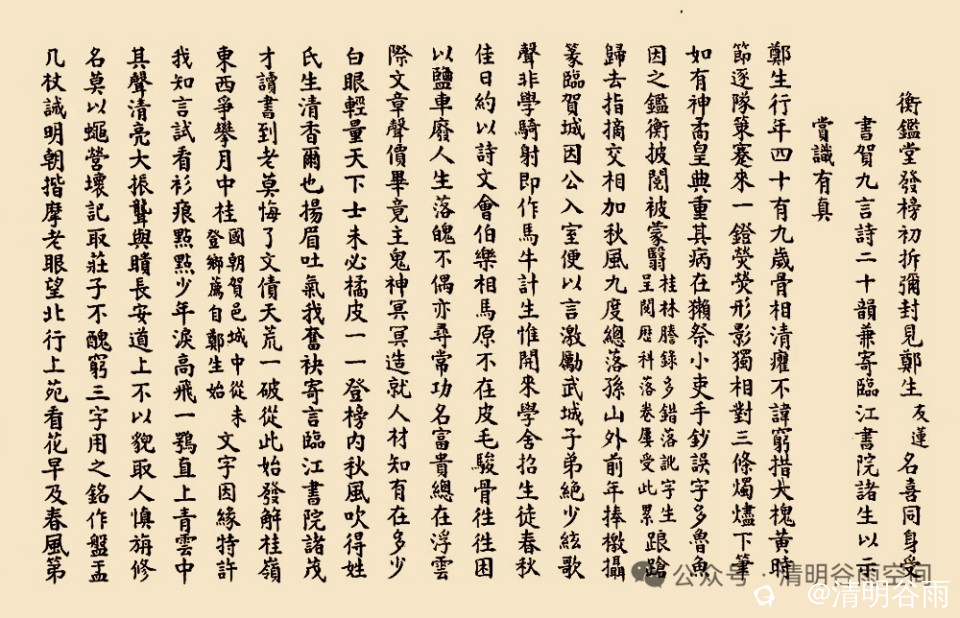 衡鑑堂發榜初拆彌封見鄭生友蓮名喜同身受
書賀九言詩二十韻兼寄臨江書院諸生以示
賞識有真
鄭生行年四十有九歲骨相清癯不諱窮措大槐黃時
節逐隊策蹇來一鐙熒熒形影獨相對三條燭燼下筆
如有神矞皇典重其病在獺祭小吏手鈔誤字多魯魚
因之鑑衡披閱被蒙翳桂林謄錄多錯落訛字生呈閱歷科落卷屢受此累踉蹌
歸去指摘交相加秋風九度總落孫山外前年捧檄攝
篆臨賀城因公入室便以言激勵武城子弟絕少絃歌
聲非學騎射即作馬牛計生惟開來學舍招生徒春秋
佳日約以詩文會伯樂相馬原不在皮毛駿骨往往困
以鹽車廢人生落魄不偶亦尋常功名富貴總在浮雲
際文章聲價畢竟主鬼神冥冥造就人材知有在多少
白眼輕量天下士未必橘皮一一登榜內秋風吹得姓
氏生清香爾也揚眉吐氣我奮袂寄言臨江書院諸茂
才讀書到老莫悔了文債天荒一破從此始發解桂嶺
東西爭攀月中桂國朝賀邑城中從未登鄉薦自鄭生始文字因緣特許
我知言試看衫痕點點少年淚高飛一鶚直上青雲中
其聲清亮大振聾與聵長安道上不以貌取人慎旃修
名莫以蠅營壞記取莊子不醜窮三字用之銘作盤盂
几杖誠明朝揩摩老眼望北行上苑看花早及春風第
公众号·清明谷雨空间
@清明谷雨